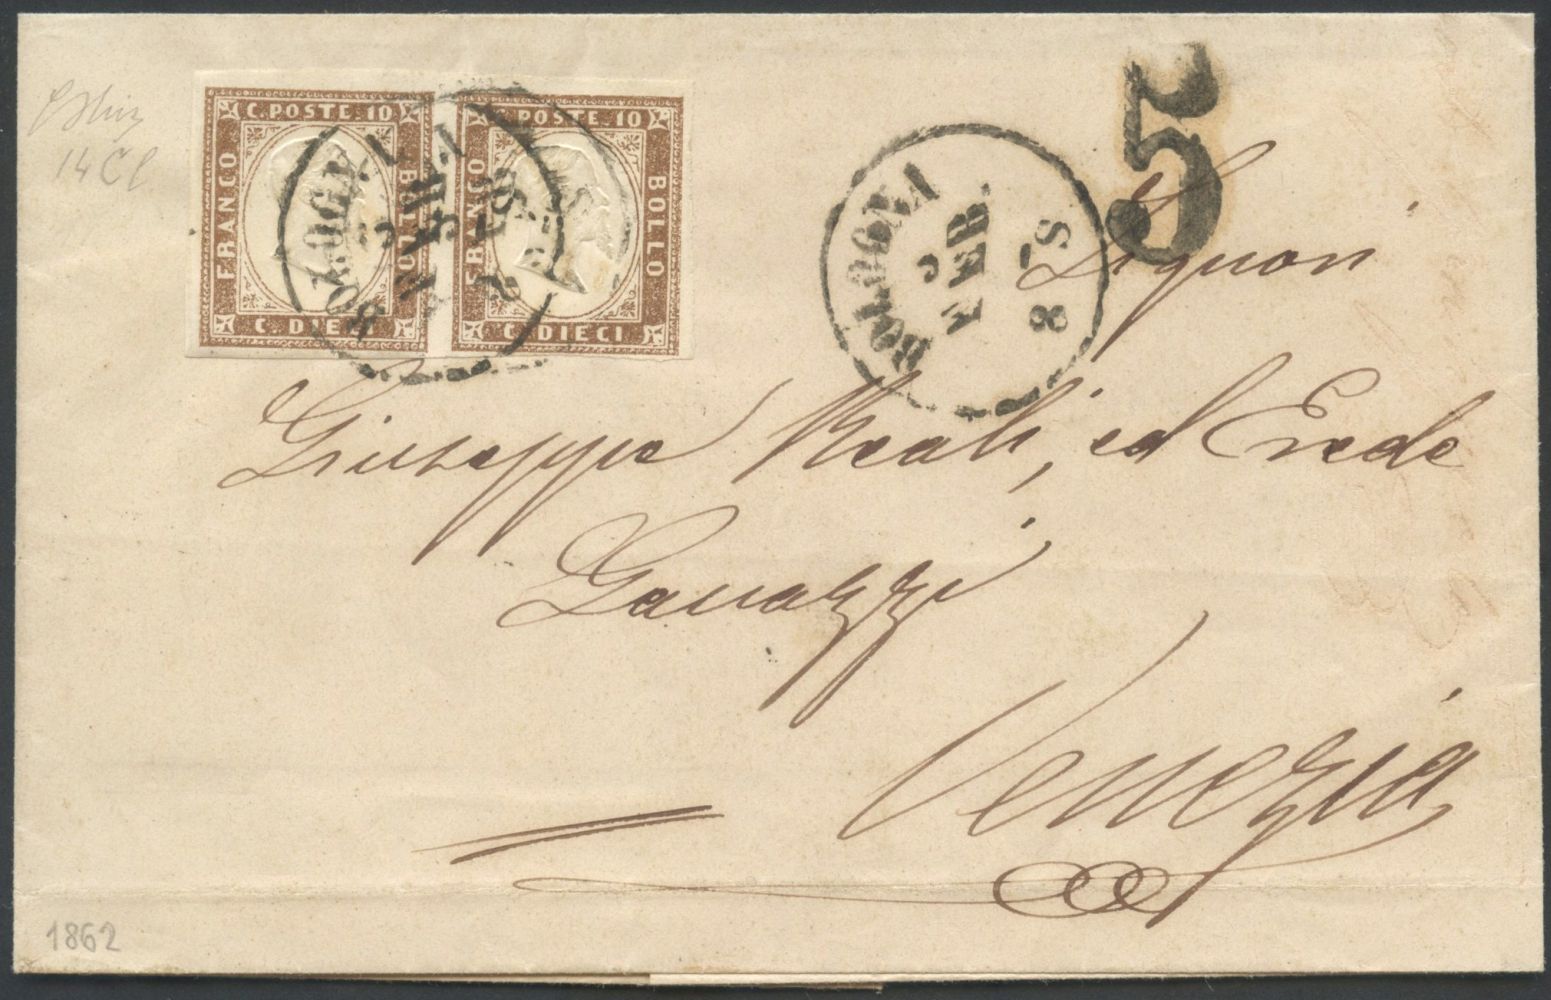 14Cl.
C. POSTE. 10
FRANCO
BOLLO
C. DIECI
C. POSTE. 10
FRANCO
BOLLO
C. DIECI
BOLOGNA
FEB.
BOLOGNA
FEB.
8 S
5
Signori
Giuseppe Reali, ed Erede
Gavazzi
Venezia
1862